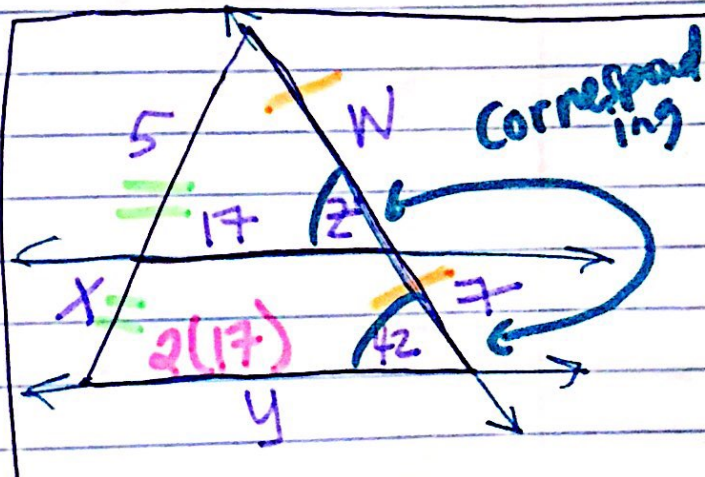 5
W
Correspond
ing
17
Z
X
7
2(17)
42
y